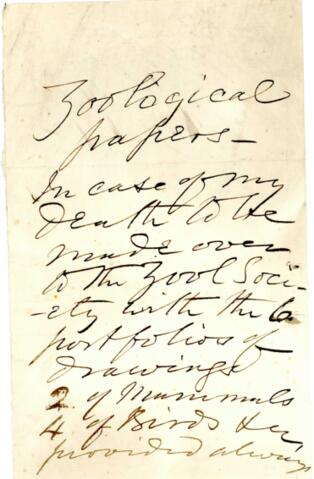 Zoological
papers –
In case of my
death to be
made over
to the Zool Soci-
-ety with the 6
portfolios of
drawings
2 of Mammals
4 of Birds &c
provided always